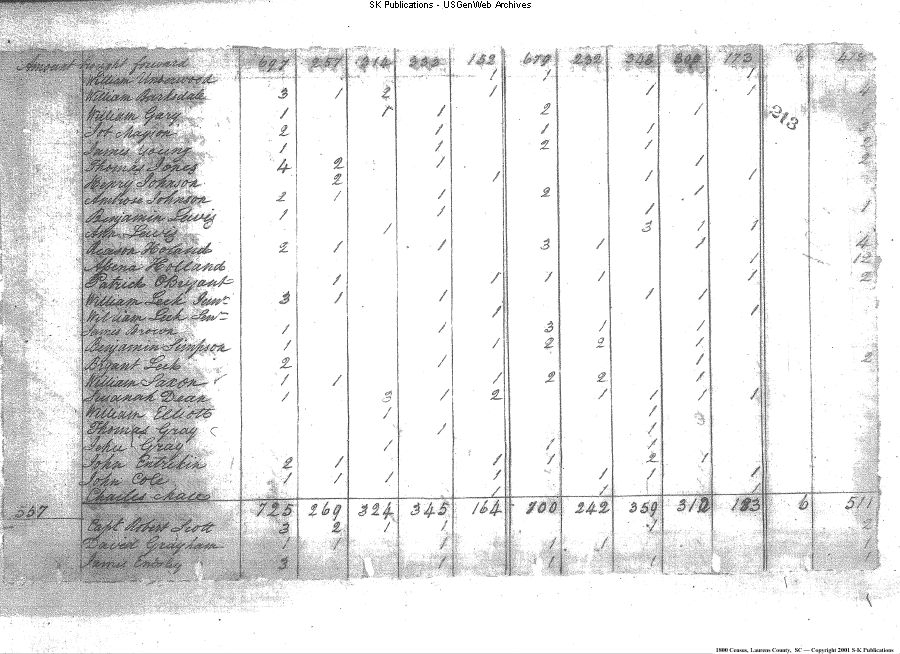 SK Publications - USGenWeb Archives
Amount brought forward 697 251 314 333 152 679 232 348 302 173 6
William Underwood 1 1 1
William Barksdale 3 1 2 1 1 1 4
William Gary 1 1 1 2 1
213
Job Mayson 2 1 1 1
James Young 1 1 2 1
Thomas Jones 4 2 1 1
Henry Johnson 2 1 1 1
Ambrose Johnson 2 1 1 2 1
Benjamin Lewis 1 1 1 1
Ann Lewis 1 3 1 1
Reason Holand 2 1 1 3 1 1 4
Holland 1 12
Patrick OBryant 1 1 1 1 1 2
William Leek Junr 3 1 1 1 1
William Leek Senr 1 1
James Brown 1 1 3 1 1
Benjamin Simpson 1 1 2 2 1
Bryant Leek 2 1 1 2
William Saxon 1 1 1 2 2 1
Susanah Dean 1 3 1 2 1 1 1 1
William Elliott 1 1 3
Thomas Gray 1 1
John Gray 1 1 1
John Entrikin 2 1 1 1 2 1
John Cole 1 1 1 1 1 1 1
Charles 1 1 1
357 725 269 324 345 164 700 242 359 312 183 6 511
Capt Robert Scott 3 2 1 1 1 2
David Grayham 1 1 1 1 1 1
James 3 1 1 1 1
1800 Census, Laurens County, SC — Copyright 2001 S-K Publications